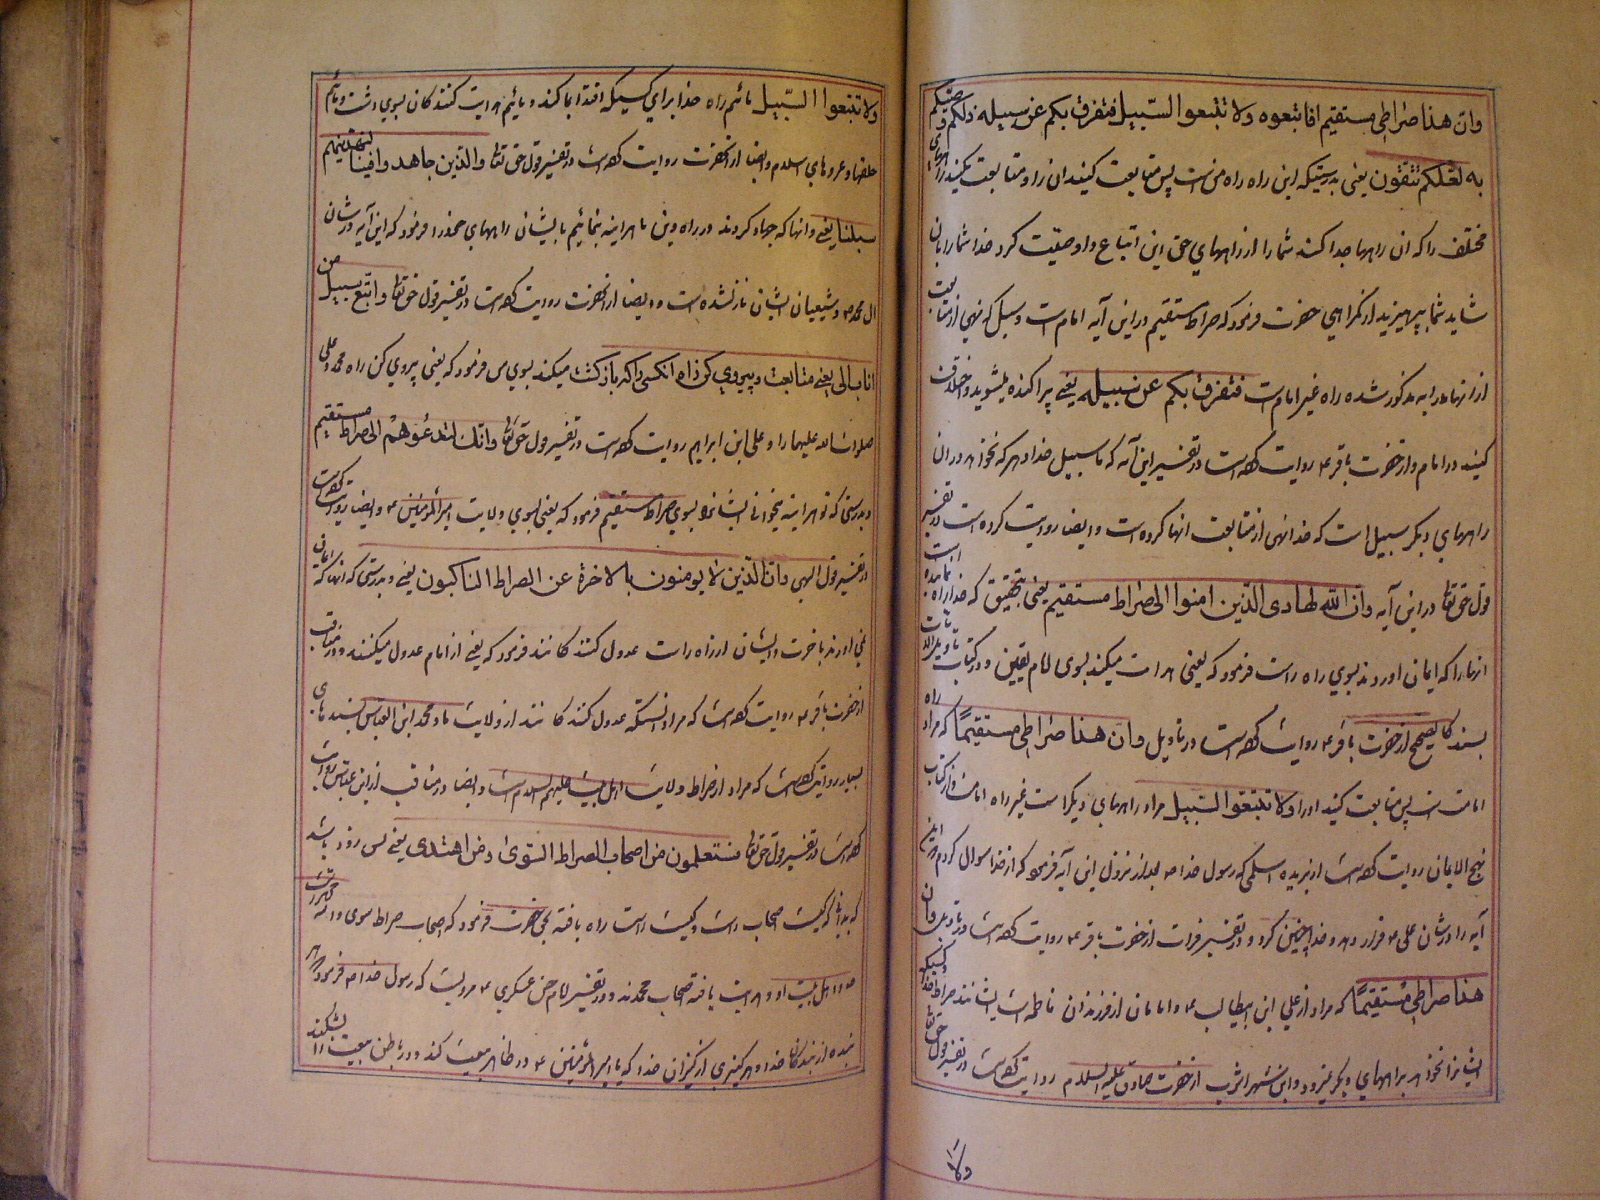 وان هذا صراطی مستقیم افاتبعوه ولا تتبعوا السبیل فتفرق بکم عن سبیله ذلکم وصیکم
به لعلکم تتقون یعنی بدرستیکه این راه راه من است پس متابعت کنید ان را و متابعت مکنید راههای
مختلف را که ان راهها جدا کند شما را از راههای حق این اتباع را وصیت کرد خدا شما را بان
شاید شما بپرهیزید از گمراهی حضرت فرمود که صراط مستقیم در این آیه امام است و سبل که نهی از متابعت
از انها در آیه مذکور شده راه غیر امام است فتفرق بکم عن سبیله یعنی پراکنده میشوید و اختلاف
کنید در امام و از حضرت باقر ع روایت کرده است در تفسیر این آیه که ما سبیل خدا و هر که نخواهد در ان
راههای دیکر سبیل است که خدا نهی از متابعت انها کرده است و ایضا روایت کرده است در تفسیر
قول حق تعا در این آیه وان الله لهادی الذین امنوا الی صراط مستقیم یعنی بتحقیق که خدا راه نماینده است
انها را که ایمان اوردند بسوی راه راست فرمود که یعنی هدایت میکند بسوی امام یقین و در کتاب تاویل الایات
بسند کالصحیح از حضرت باقر ع روایت کرده است در تاویل وان هذا صراطی مستقیما که مراد راه
امامت است پس متابعت کنید او را ولا تتبعوا السبیل مراد راههای دیکر است غیر راه امامت و از کتاب
نهج الایمان روایت کرده است از بریده اسلمی که رسول خدا ص بعد از نزول این آیه فرمود که از خدا سوال کردم که این
آیه را در شان علی ع قرار دهد و خدا چنین کرد و در تفسیر فرات از حضرت باقر ع روایت کرده است در تاویل وان
هذا صراطی مستقیما که مراد از علی ابن ابیطالب ع و امامان از فرزندان فاطمه است ایشانند صراط خدا
ایشان را نخواهد براههای دیکر میرود و ابن شهر اشوب از حضرت صادق علیه السلام روایت کرده است در تفسیر قول حق تعا
ولا
ولا تتبعوا السبیل مائیم راه خدا برای کسیکه اقتدا بما کند و مائیم هدایت کنندکان بسوی بهشت و مائیم
حلقها و عروهای اسلام و ایضا از انحضرت روایت کرده است در تفسیر قول حق تعا والذین جاهدوا فینا لنهدینهم
سبلنا یعنی و انها که جهاد کردند در راه دین ما هراینه بنمائیم بایشان راههای خود را فرمود که این آیه در شان
ال محمد ص و شیعیان ایشان نازل شده است و ایضا از انحضرت روایت کرده است در تفسیر قول حق تعا واتبع سبیل من
اناب الی یعنی متابعت و پیروی کن راه انکسی را که بازکشت میکند بسوی من فرمود که یعنی پیروی کن راه محمد و علی
صلوات الله علیهما را و علی ابن ابراهیم روایت کرده است در تفسیر قول حق تعا وانک لتدعوهم الی صراط مستقیم
و بدرستی که تو هراینه میخوانی ایشانرا بسوی صراط مستقیم فرمود که یعنی بسوی ولایت امیر المؤمنین ع و ایضا روایت کرده است
در تفسیر قول الهی وان الذین لا یومنون بالاخرة عن الصراط الناکبون یعنی و بدرستی که انها که ایمان
نمی اورند باخرت ایشان از راه راست عدول کنندکانند فرمود که یعنی از امام عدول میکنند و در مناقب
از حضرت باقر ع روایت کرده است که مراد انستکه عدول کنندکانند از ولایت ما و محمد ابن العباس بسندهای
بسیار روایت کرده است که مراد از صراط ولایت اهل بیت علیهم السلام است و ایضا در مناقب از ابن عباس روایت
کرده است در تفسیر قول حق تعا فستعلمون من اصحاب الصراط السوی ومن اهتدی یعنی پس زود باشد
که بدانید که کیست اصحاب راه راست و کیست راه یافته بحق حضرت فرمود که اصحاب صراط سوی والله محمد است
و اهل بیت او و هدایت یافته اصحاب محمدند و در تفسیر امام حسن عسکری ع مرویست که رسول خدا ص فرمود هر
بنده از بندکان خدا و هر کنیزی از کنیزان خدا که با امیر المؤمنین ع در ظاهر بیعت کند و در باطن بیعت را بشکند